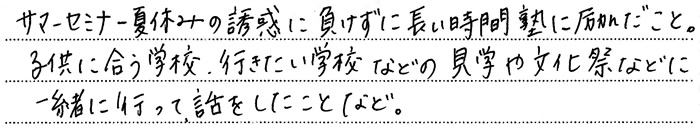 サマーセミナー夏休みの誘惑に負けずに長い時間塾に励んだこと。
子供に合う学校、行きたい学校などの見学や文化祭などに
一緒に行って、話をしたことなど。